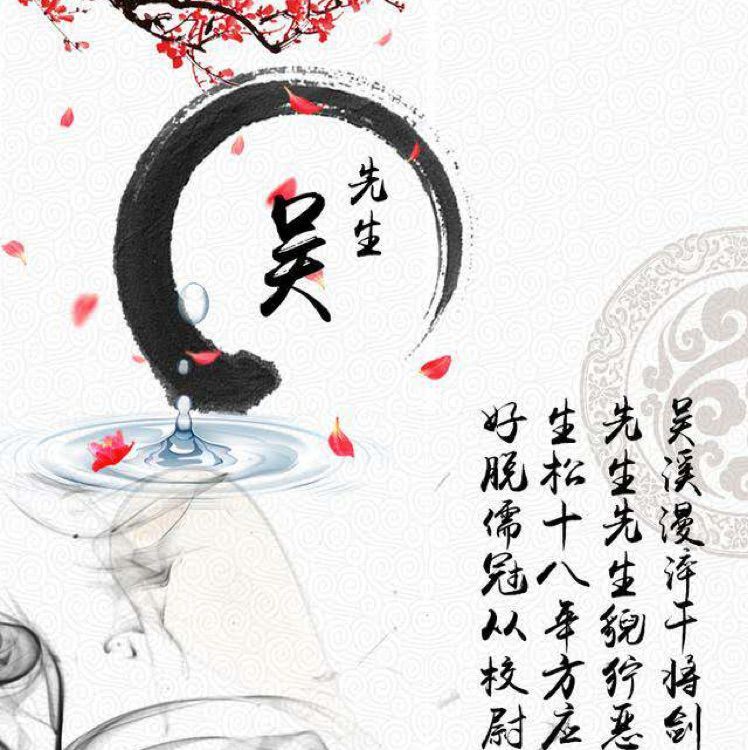 吴
先生
吴溪漫淬干将剑
先生先生貌狞恶
生松十八年方应
好脱儒冠从校尉